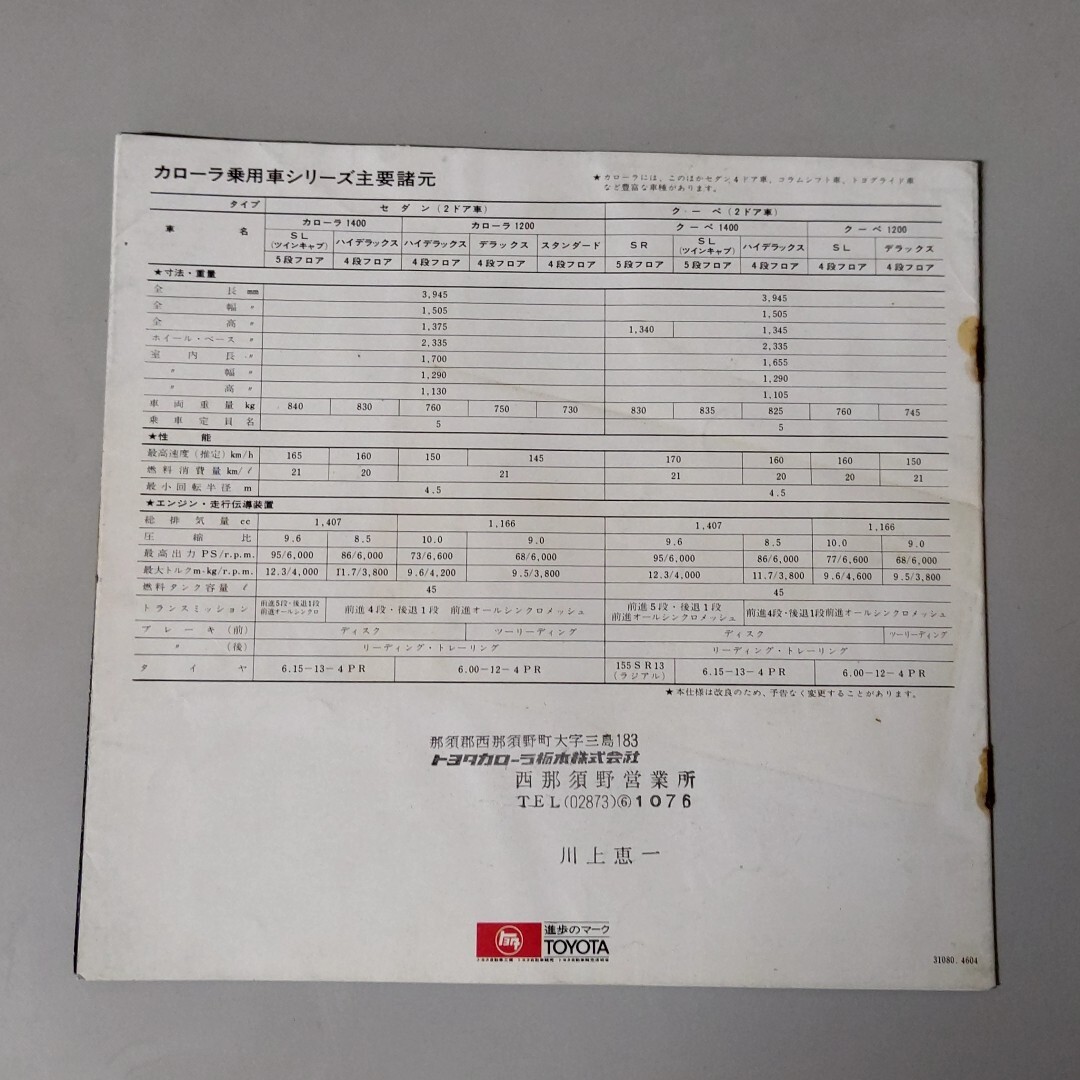 カローラ乗用車シリーズ主要諸元
★カローラには、このほかセダン4ドア車、コラムシフト車、トヨグライド車
など豊富な車種があります。
タイプ セダン(2ドア車) クーペ(2ドア車)
車名 カローラ1400 カローラ1200 クーペ1400 クーペ1200
SL(ツインキャブ) ハイデラックス ハイデラックス デラックス スタンダード SR SL(ツインキャブ) ハイデラックス SL デラックス
5段フロア 4段フロア 4段フロア 4段フロア 4段フロア 5段フロア 5段フロア 4段フロア 4段フロア 4段フロア
★寸法・重量
全長 mm 3,945 3,945
全幅 〃 1,505 1,505
全高 〃 1,375 1,340 1,345
ホイール・ベース 〃 2,335 2,335
室内長 〃 1,700 1,655
〃 幅 〃 1,290 1,290
〃 高 〃 1,130 1,105
車両重量 kg 840 830 760 750 730 830 835 825 760 745
乗車定員 名 5 5
★性能
最高速度(推定)km/h 165 160 150 145 170 160 160 150
燃料消費量 km/ℓ 21 20 21 21 20 20 21
最小回転半径 m 4.5 4.5
★エンジン・走行伝導装置
総排気量 cc 1,407 1,166 1,407 1,166
圧縮比 9.6 8.5 10.0 9.0 9.6 8.5 10.0 9.0
最高出力 PS/r.p.m. 95/6,000 86/6,000 73/6,600 68/6,000 95/6,000 86/6,000 77/6,600 68/6,000
最大トルク m-kg/r.p.m. 12.3/4,000 11.7/3,800 9.6/4,200 9.5/3,800 12.3/4,000 11.7/3,800 9.6/4,600 9.5/3,800
燃料タンク容量 ℓ 45 45
トランスミッション 前進5段・後退1段 前進オールシンクロ 前進4段・後退1段 前進オールシンクロメッシュ 前進5段・後退1段 前進オールシンクロメッシュ 前進4段・後退1段前進オールシンクロメッシュ
ブレーキ(前) ディスク ツーリーディング ディスク ツーリーディング
〃 (後) リーディング・トレーリング リーディング・トレーリング
タイヤ 6.15-13-4PR 6.00-12-4PR 155SR13(ラジアル) 6.15-13-4PR 6.00-12-4PR
★本仕様は改良のため、予告なく変更することがあります。
那須郡西那須野町大字三島183
トヨタカローラ栃木株式会社
西那須野営業所
TEL(02873)⑥1076
川上恵一
トヨタ
進歩のマーク
TOYOTA
31080.4604